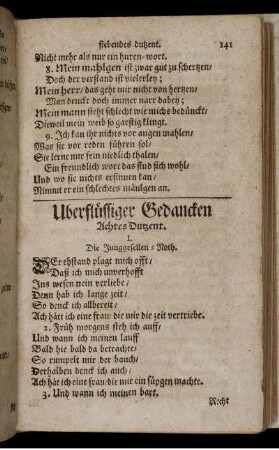 siebendes dutzent. 141
Nicht mehr als nur ein huren-wort.
8. Mein mählgen ist zwar gut zu schertzen/
Doch der verstand ist vielerley;
Mein herr/ das geht mir nicht von hertzen/
Man denckt doch immer narr dabey;
Mein mann steht schlecht wie michs bedünckt/
Dieweil mein weib so garstig klingt.
9. Ich kan ihr nichts vor augen mahlen/
Was sie vor reden führen sol/
Sie lerne nur fein niedlich thalen/
Ein freundlich wort das sind sich wohl/
Und wo sie nichts ersinnen kan/
Nimmt er ein schlechtes mäulgen an.
Uberflüssiger Gedancken
Achtes Dutzent.
I.
Die Junggesellen-Noth.
DEr ehstand plagt mich offt/
Daß ich mich unverhofft
Ins wesen nein verliebe/
Denn hab ich lange zeit/
So denck ich allbereit/
Ach hätt ich eine frau/ die mir die zeit vertriebe.
2. Früh morgens steh ich auff/
Und wann ich meinen lauff
Bald hie bald da betrachte/
So rumpelt mir der bauch/
Derhalben denck ich auch/
Ach hätt ich eine frau/ die mir ein süpgen machte.
3. Und wann ich meinen bart,
Recht